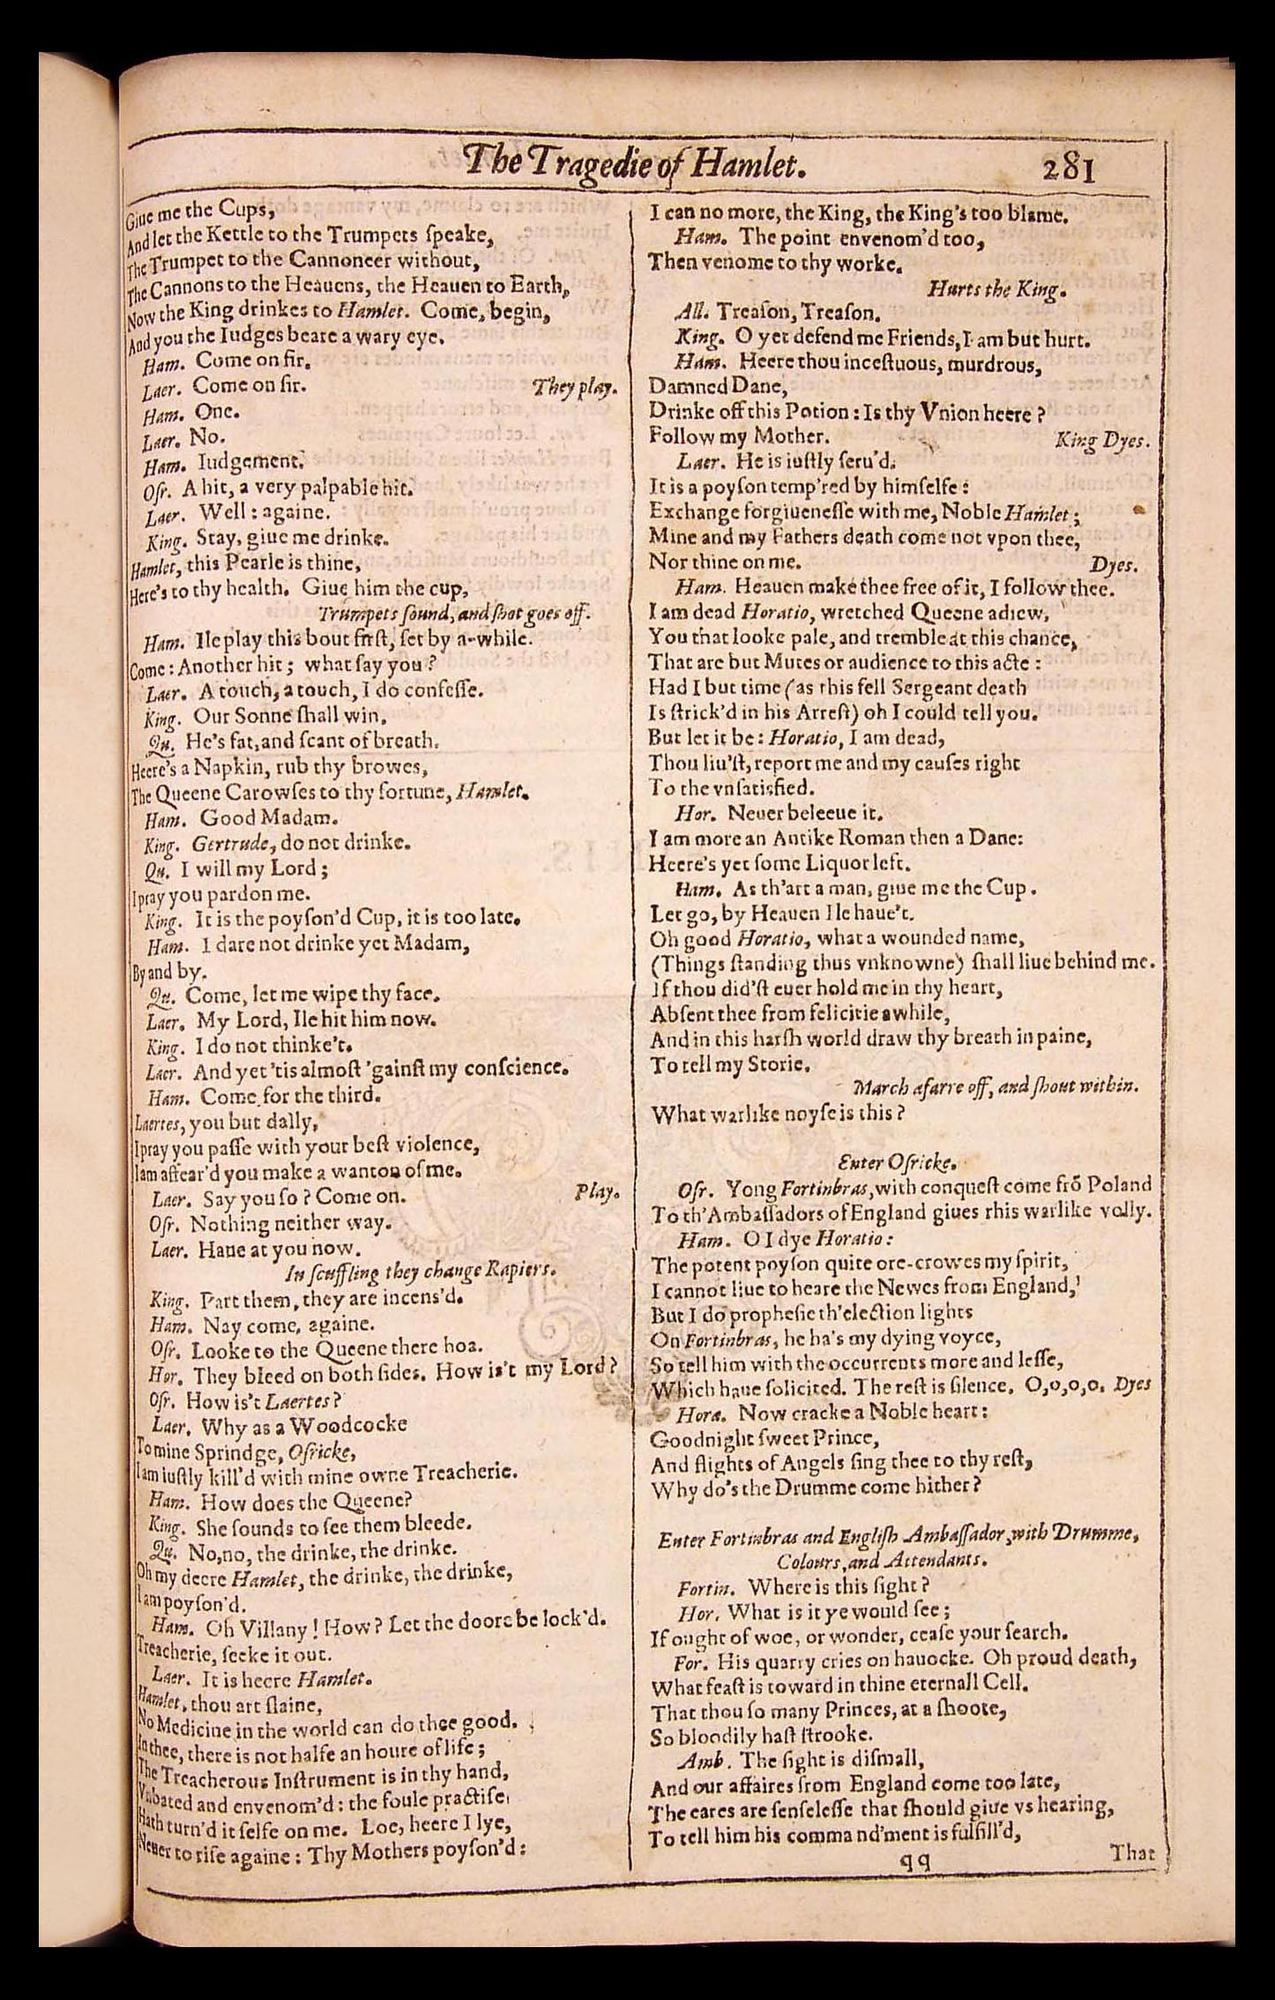 The Tragedie of Hamlet. 281
Giue me the Cups,
And let the Kettle to the Trumpets ſpeake,
The Trumpet to the Cannoneer without,
The Cannons to the Heauens, the Heauen to Earth,
Now the King drinkes to Hamlet. Come, begin,
And you the Iudges beare a wary eye.
Ham. Come on ſir.
Laer. Come on ſir. They play.
Ham. One.
Laer. No.
Ham. Iudgement.
Oſr. A hit, a very palpable hit.
Laer. Well : againe.
King. Stay, giue me drinke.
Hamlet, this Pearle is thine,
Here's to thy health. Giue him the cup,
Trumpets ſound, and ſhot goes off.
Ham. Ile play this bout firſt, ſet by a-while.
Come : Another hit ; what ſay you ?
Laer. A touch, a touch, I do confeſſe.
King. Our Sonne ſhall win.
Qu. He's fat, and ſcant of breath.
Heere's a Napkin, rub thy browes,
The Queene Carowſes to thy fortune, Hamlet.
Ham. Good Madam.
King. Gertrude, do not drinke.
Qu. I will my Lord ;
I pray you pardon me.
King. It is the poyſon'd Cup, it is too late.
Ham. I dare not drinke yet Madam,
By and by.
Qu. Come, let me wipe thy face.
Laer. My Lord, Ile hit him now.
King. I do not thinke't.
Laer. And yet 'tis almoſt 'gainſt my conſcience.
Ham. Come for the third.
Laertes, you but dally,
I pray you paſſe with your beſt violence,
I am affear'd you make a wanton of me.
Laer. Say you ſo ? Come on. Play.
Oſr. Nothing neither way.
Laer. Haue at you now.
In ſcuffling they change Rapiers.
King. Part them, they are incens'd.
Ham. Nay come, againe.
Oſr. Looke to the Queene there hoa.
Hor. They bleed on both ſides. How is't my Lord ?
Oſr. How is't Laertes ?
Laer. Why as a Woodcocke
To mine Sprindge, Oſricke,
I am iuſtly kill'd with mine owne Treacherie.
Ham. How does the Queene?
King. She ſounds to ſee them bleede.
Qu. No, no, the drinke, the drinke.
Oh my deere Hamlet, the drinke, the drinke,
I am poyſon'd.
Ham. Oh Villany ! How ? Let the doore be lock'd.
Treacherie, ſeeke it out.
Laer. It is heere Hamlet.
Hamlet, thou art ſlaine,
No Medicine in the world can do thee good.
In thee, there is not halfe an houre of life ;
The Treacherous Inſtrument is in thy hand,
Vnbated and envenom'd : the foule practiſe
Hath turn'd it ſelfe on me. Loe, heere I lye,
Neuer to riſe againe : Thy Mothers poyſon'd :
I can no more, the King, the King's too blame.
Ham. The point envenom'd too,
Then venome to thy worke.
Hurts the King.
All. Treaſon, Treaſon.
King. O yet defend me Friends, I am but hurt.
Ham. Heere thou inceſtuous, murdrous,
Damned Dane,
Drinke off this Potion : Is thy Vnion heere ?
Follow my Mother. King Dyes.
Laer. He is iuſtly ſeru'd.
It is a poyſon temp'red by himſelfe :
Exchange forgiueneſſe with me, Noble Hamlet ;
Mine and my Fathers death come not vpon thee,
Nor thine on me. Dyes.
Ham. Heauen make thee free of it, I follow thee.
I am dead Horatio, wretched Queene adiew,
You that looke pale, and tremble at this chance,
That are but Mutes or audience to this acte :
Had I but time (as this fell Sergeant death
Is ſtrick'd in his Arreſt) oh I could tell you.
But let it be : Horatio, I am dead,
Thou liu'ſt, report me and my cauſes right
To the vnſatisfied.
Hor. Neuer beleeue it.
I am more an Antike Roman then a Dane:
Heere's yet ſome Liquor left.
Ham. As th'art a man, giue me the Cup.
Let go, by Heauen Ile haue't.
Oh good Horatio, what a wounded name,
(Things ſtanding thus vnknowne) ſhall liue behind me.
If thou did'ſt euer hold me in thy heart,
Abſent thee from felicitie awhile,
And in this harſh world draw thy breath in paine,
To tell my Storie.
March afarre off, and ſhout within.
What warlike noyſe is this ?
Enter Oſricke.
Oſr. Yong Fortinbras, with conqueſt come frõ Poland
To th'Ambaſſadors of England giues rhis warlike volly.
Ham. O I dye Horatio :
The potent poyſon quite ore-crowes my ſpirit,
I cannot liue to heare the Newes from England,
But I do propheſie th'election lights
On Fortinbras, he ha's my dying voyce,
So tell him with the occurrents more and leſſe,
Which haue ſolicited. The reſt is ſilence. O, o, o, o. Dyes
Hora. Now cracke a Noble heart :
Goodnight ſweet Prince,
And flights of Angels ſing thee to thy reſt,
Why do's the Drumme come hither ?
Enter Fortinbras and Engliſh Ambaſſador, with Drumme,
Colours, and Attendants.
Fortin. Where is this ſight ?
Hor. What is it ye would ſee ;
If ought of woe, or wonder, ceaſe your ſearch.
For. His quarry cries on hauocke. Oh proud death,
What feaſt is toward in thine eternall Cell.
That thou ſo many Princes, at a ſhoote,
So bloodily haſt ſtrooke.
Amb. The ſight is diſmall,
And our affaires from England come too late,
The eares are ſenſeleſſe that ſhould giue vs hearing,
To tell him his command'ment is fulfill'd,
qq That